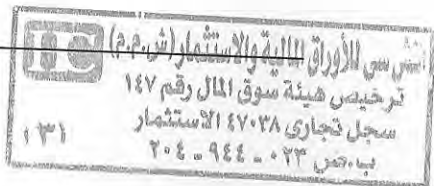 سي للأوراق المالية والاستثمار (ش.م.م)
ترخيص هيئة سوق المال رقم ١٤٧
سجل تجارى ٤٧٠٣٨ الاستثمار
ب.ض ٠٢٣ - ٩٤٤ - ٢٠٤
٣١